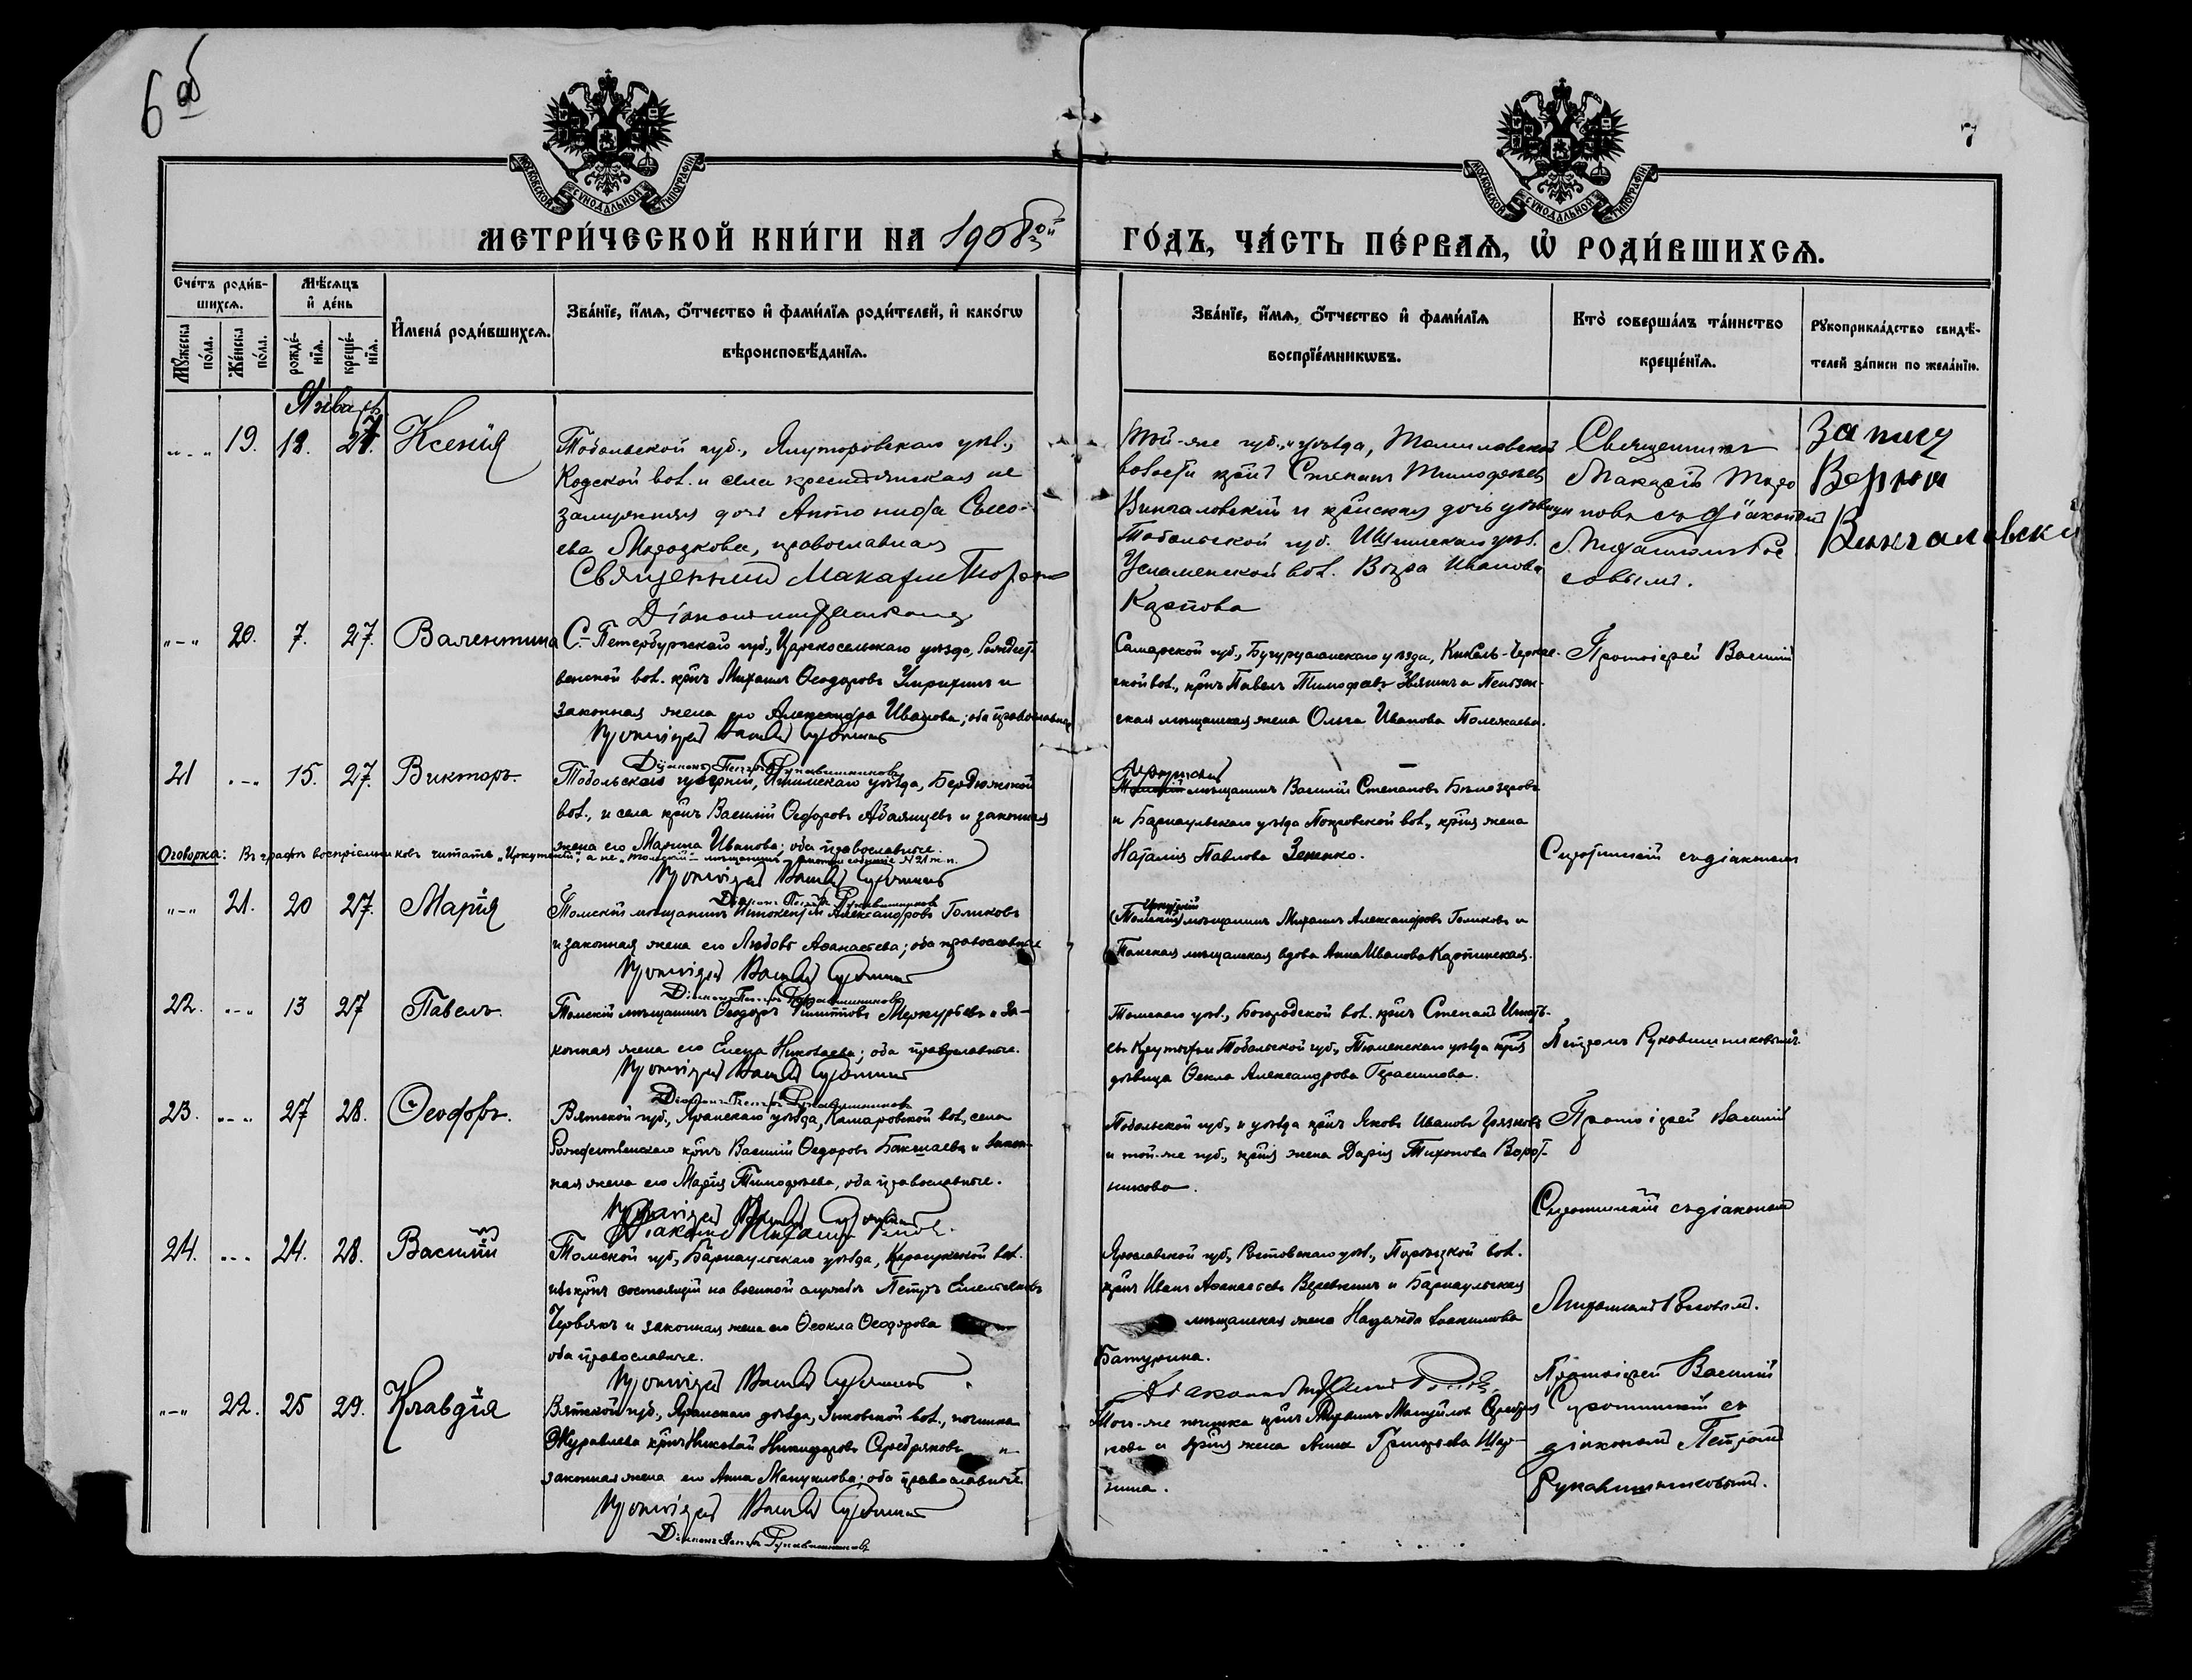 6 об
7
МОСКОВСКОЙ СѴНОДАЛЬНОЙ ТИПОГРАФІИ
МОСКОВСКОЙ СѴНОДАЛЬНОЙ ТИПОГРАФІИ
МЕТРИ́ЧЕСКОЙ КНИ́ГИ НА 1908ой
ГО́ДЪ, ЧА́СТЬ ПЕ́РВАѦ, Ѡ҆ РОДИ́ВШИХСѦ.
Сче́тъ роди́в-
шихсѧ.
Мꙋ́жеска по́ла.
Же́нска по́ла.
Мѣ́сѧцъ
и҆ де́нь
рожде́-нїѧ.
креще́-нїѧ.
И҆мена̀ роди́вшихсѧ.
Зва́нїе, и҆́мѧ, ѻ҆́тчество и҆ фами́лїѧ роди́телей, и҆ како́гѡ
вѣроисповѣ́данїѧ.
Зва́нїе, и҆́мѧ, ѻ҆́тчество и҆ фами́лїѧ
воспрїе́мникѡвъ.
Кто̀ соверша́лъ та́инство
креще́нїѧ.
Рꙋкоприкла́дство свидѣ́-
телей за́писи по жела́нїю.
Январь
„-„ 19. 12. 27. Ксенія
Тобольской губ., Ялуторовскаго уѣз.,
Кодской вол. и села крестьянская не
замужняя дочь Антонида
ева Морозкова, православная
Священникъ Макарій
Діаконъ
Той-же губ., и уѣзда, Томиловской
волости крест. Степанъ Тимофеевъ
Винчаловскій и крестьянская дочь дѣвица
Тобольской губ. Ишимскаго уѣз.
Усламенской вол. Вѣра Иванова
Карпова
Священникъ
Макарій
съ діакономъ
Михаиломъ
совымъ.
Запись
Верна
Винчаловскій
„-„ 20. 7. 27. Валентина
С.-Петербургской губ., Царскосельскаго уѣзда, Рождест-
венской вол. крнъ Михаилъ Ѳеодоровъ и
законная жена его Александра Иванова; оба православные
Протоіерей Василій Сиротинскій
Діаконъ Петръ Рукавишниковъ
Самарской губ., Бугурусланскаго уѣзда, Кинель-Черкас-
ской вол., крнъ Павелъ Тимофеевъ и Пензен-
ская мѣщанская жена Ольга Иванова Полежаева.
Протоіерей Василій
21 „-„ 15. 27. Викторъ
Тобольской губерніи, Ишимскаго уѣзда, Бердюжской
вол., и села крнъ Василій Ѳедоровъ и законная
жена его Марина Иванова; оба православные.
Протоіерей Василій Сиротинскій
Діаконъ Петръ Рукавишниковъ
Иркутскій
Томскій мѣщанинъ Василій Степановъ Бѣлозеровъ
и Барнаульскаго уѣзда Покровской вол., крнія жена
Наталія Павлова Зененко.
Сиротинскій съ діакономъ
Оговорка: Въ графѣ воспріемниковъ читать „Иркутскій“, а не „томскій“ мѣщанинъ
„-„ 21. 20 27. Марія
Томскій мѣщанинъ Иннокентій Александровъ Голиковъ
и законная жена его Любовь Аѳанасьева; оба православные
Протоіерей Василій Сиротинскій
Діаконъ Петръ Рукавишниковъ
Иркутскій
(Томскій) мѣщанинъ Михаилъ Александровъ Голиковъ и
Томская мѣщанская вдова Анна Иванова Карпинская.
22. „-„ 13 27 Павелъ
Томскій мѣщанинъ Ѳеодоръ Филипповъ Меркурьевъ и за-
конная жена его Елена Николаева; оба православные.
Протоіерей Василій Сиротинскій
Діаконъ Петръ Рукавишниковъ
Томскаго уѣз., Богородской вол. крнъ Степанъ
Тобольской губ., Тюменскаго уѣзда крнія
дѣвица Ѳекла Александрова Герасимова.
Петромъ Рукавишниковымъ.
23. „-„ 27 28. Ѳеодоръ
Вятской губ., Яранскаго уѣзда, Комаровской вол., села
Рождественскаго крнъ Василій Ѳедоровъ Бакшаевъ и закон-
ная жена его Марія Тимофеева, оба православные.
Протоіерей Василій Сиротинскій
Діаконъ Михаилъ
Тобольской губ., и уѣзда крнъ Яковъ Ивановъ Грязновъ
и той-же губ., крнія жена Дарія Тихонова Ворот-
никова.
Протоіерей Василій
Сиротинскій съ діакономъ
24. „-„ 24. 28. Василій
Томской губ., Барнаульскаго уѣзда, Карасукской вол.
крнъ состоящій на военной службѣ Петръ Емельяновъ
Червякъ и законная жена его Ѳекла Ѳеодорова
оба православные.
Протоіерей Василій Сиротинскій
Ярославской губ., Ростовскаго уѣз., вол.
крнъ Иванъ Аѳанасьевъ Веревкинъ и Барнаульская
мѣщанская жена Надежда Іоакимова
Батурина.
Діаконъ Михаилъ
Михаиломъ
„-„ 22. 25 29. Клавдія
Вятской губ., Яранскаго уѣзда, вол., починка
Журавлева крнъ Николай Никифоровъ Серебряковъ и
законная жена его Анна Мануилова; оба православные.
Протоіерей Василій Сиротинскій
Діаконъ Петръ Рукавишниковъ
Того-же починка крнъ Михаилъ Мануйловъ
и крнія жена Анна Григорьева
Протоіерей Василій
Сиротинскій съ
діакономъ Петромъ
Рукавишниковымъ.